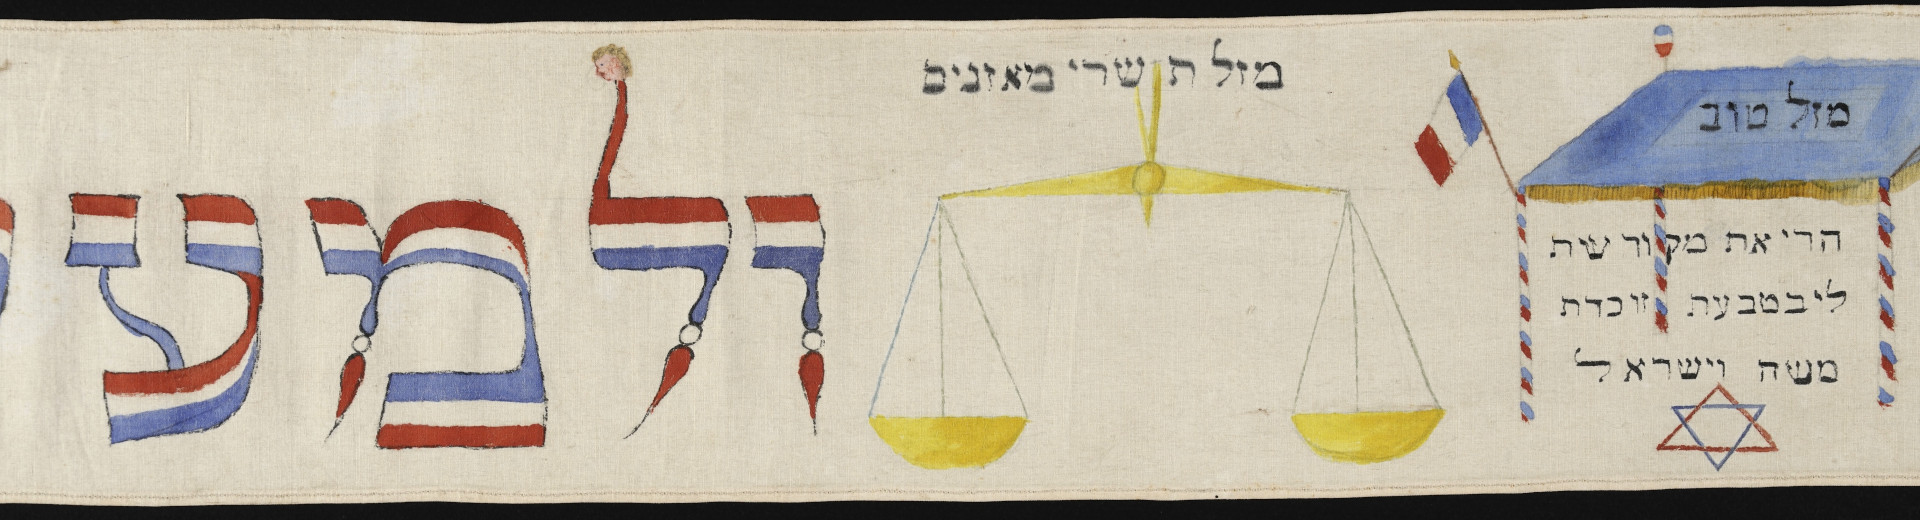 מזל טוב
הרי את מקודשית
לי בטבעת זו כדת
משה וישראל
מזל תשרי מאזנים
ולמע